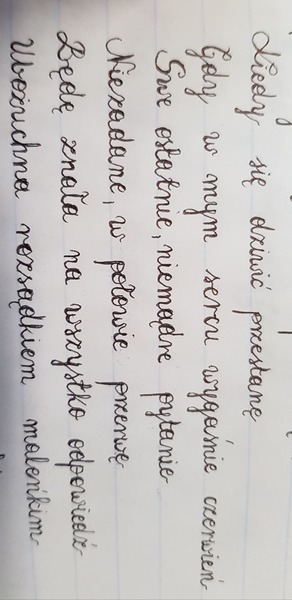 Kiedy się dziwić przestanę
Gdy w mym sercu wygaśnie czerwień
Swe ostatnie, niemądre pytanie
Niezadane, w połowie przerwę
Będę znała na wszystko odpowiedź
Ubożuchna rozsądkiem maleńkim